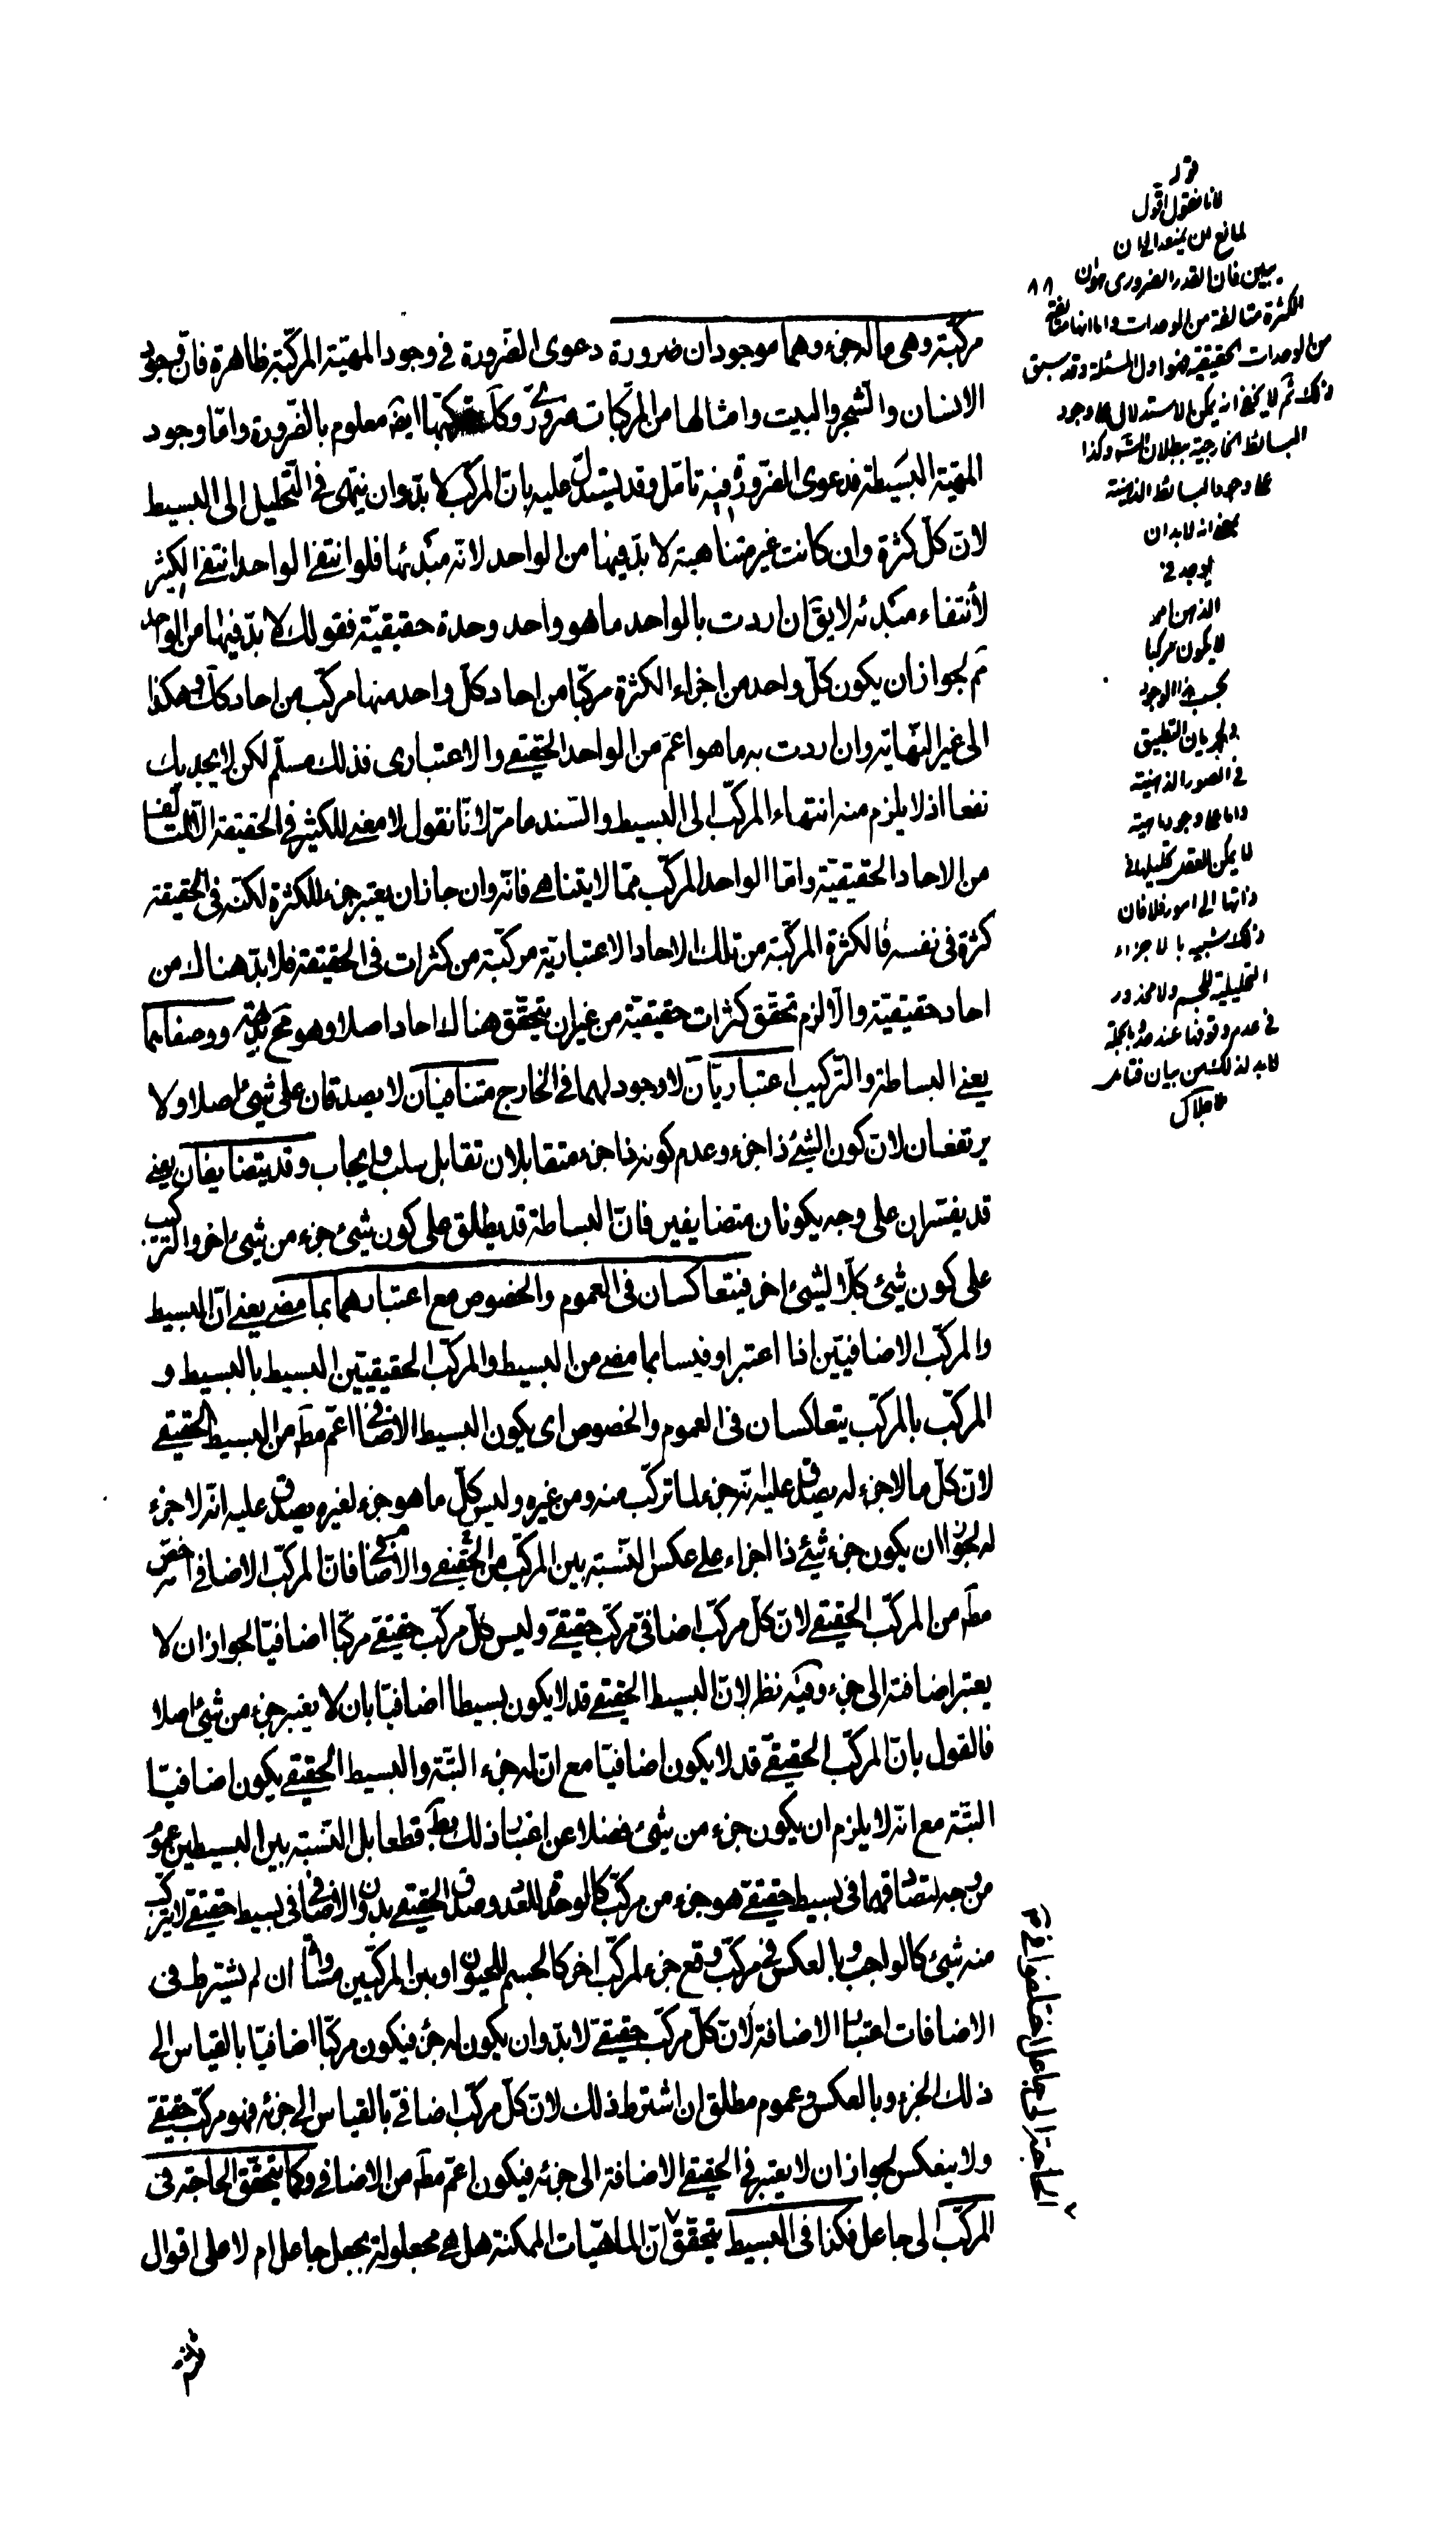 مركّبة وهى ماله جزء وهما موجودان ضرورة دعوى الضّرورة فى وجود المهيّة المركّبة ظاهرة فانّ وجود
الانسان والشجر والبيت وامثالها من المركّبات ضرورىّ وكذا تركّبها ايضَ معلوم بالضّرورة وامّا وجود
المهيّة البسيطة فدعوى الضّرورة فيه تامّل وقد يستدلّ عليه بانّ المركّب لا بدّ وان ينتهى فى التّحليل الى البسيط
لانّ كلّ كثرة وان كانت غير متناهية لا بدّ فيها من الواحد لانّه مبدئها فلو انتفى الواحد انتفى الكثير
لأنتفاء مبدئه لا يقَ ان اردت بالواحد ما هو واحد وحدة حقيقيّة فقولك لا بدّ فيها من الواحد
مَم لجواز ان يكون كلّ واحد من اجزاء الكثرة مركّبا من احاد كلّ واحد منها مركّب من احاد كلَ وهكذا
الى غير النّهاية وان اردت به ما هو اعمّ من الواحد الحقيقى والاعتبارى فذلك مسلّم لكن لا يجديك
نفعا اذ لا يلزم منه انتهاء المركّب الى البسيط والسّند ما مرّ لانّا نقول لا معنى للكثير فى الحقيقة الّا المتالّف
من الاحاد الحقيقيّة وامّا الواحد المركّب ممّا لا يتناهى فانّه وان جاز ان يعتبر جزء للكثرة لكنّه فى الحقيقة
كثرة فى نفسه فالكثرة المركّبة من تلك الاحاد الاعتباريّة مركّبة من كثرات فى الحقيقة فلا بدّ هناك من
احاد حقيقيّة والّا لزم تحقّق كثرات حقيقيّة من غير ان يتحقّق هناك احاد اصلا وهو مح بديهة ووصفاهما
يعنى البساطة والتّركيب اعتباريّان لا وجود لهما فى الخارج متنافيان لا يصدقان على شىء اصلا ولا
يرتفعان لانّ كون الشّىء ذا جزء وعدم كونه ذا جزء متقابلان تقابل سلب وايجاب وقد يتضايفان يعنى
قد يفسّران على وجه يكونان متضايفين فانّ البساطة قد يطلق على كون شىء جزء من شىء اخر والتّركيب
على كون شىء كلّا لشىء اخر فيتعاكسان فى العموم والخصوص مع اعتبارهما بما مضى يعنى انّ البسيط
والمركّب الاضافيّين اذا اعتبرا وقيسا بما مضى من البسيط والمركّب الحقيقيّين البسيط بالبسيط و
المركّب بالمركّب يتعاكسان فى العموم والخصوص اى يكون البسيط الاضافى اعمّ مطَ من البسيط الحقيقى
لانّ كلّ ما لا جزء له يصدق عليه انّه جزء لما تركّب منه ومن غيره وليس كلّ ما هو جزء لغيره يصدق عليه انّه لا جزء
له لجواز ان يكون جزء شىء ذا اجزاء على عكس النّسبة بين المركّب الحقيقى والاضافى فانّ المركّب الاضافى اخصّ
مطَ من المركّب الحقيقى لانّ كلّ مركّب اضافىّ مركّب حقيقىّ وليس كلّ مركّب حقيقى مركّبا اضافيّا لجواز ان لا
يعتبر اضافته الى جزء وفيه نظر لانّ البسيط الحقيقى قد لا يكون بسيطا اضافيّا بان لا يعتبر جزء من شىء اصلا
فالقول بانّ المركّب الحقيقىّ قد لا يكون اضافيّا مع انّ له جزء البتّة والبسيط الحقيقى يكون اضافيّا
البتّة مع انّه لا يلزم ان يكون جزء من شىء فضلا عن اعتبار ذلك بطَ قطعا بل النّسبة بين البسيطين عموم
من وجه لتصادقهما فى بسيط حقيقىّ هو جزء من مركّب كالوحدة للعدد وصدق الحقيقى بدون الاضافى فى بسيط حقيقى لا يتركّب
منه شىء كالواجب وبالعكس فى مركّب وقع جزء لمركّب اخر كالجسم للحيوان وبين المركّبين مساواة ان لم يشترط فى
الاضافات اعتبار الاضافة لانّ كلّ مركّب حقيقىّ لا بدّ وان يكون له جزء فيكون مركّبا اضافيّا بالقياس الى
ذلك الجزء وبالعكس وعموم مطلق ان اشترط ذلك لانّ كلّ مركّب اضافىّ بالقياس الى جزئه فهو مركّب حقيقىّ
ولا ينعكس لجواز ان لا يعتبر فى الحقيقى الاضافة الى جزئه فيكون اعمّ مطَ من الاضافى وكما يتحقّق الحاجة فى
المركّب الى جاعل فكذا فى البسيط يتحقّق انّ الماهيّات الممكنة هل هى مجعولة بجعل جاعل ام لا على اقوال
قوله
لانا نقول اقول
لمانع ان يمنعه الى ان
يبين فان القدر الضرورى هو ان
الكثرة متالفة من الوحدات واما انها متالفة
من الوحدات الحقيقية فهو اول المسئلة وقد سبق
ذلك ثم لا يخفى انه يمكن الاستدلال على وجود
البسائط الخارجية ببطلان التسَ وكذا
على وجود البسائط الذهنية
بمعنى انه لا بد ان
يوجد فى
الذهن امر
لا يكون مركبا
بحسب هذا الوجود
لجريان التطبيق
فى الصور الذهنية
واما على وجود ماهية
لا يمكن للعقل تحليلها فى
ذاتها الى امور فلا فان
ذلك شبيه بالاجزاء
التحليلية للجسم ولا محذور
فى عدم وقوفها عند حد بالجملة
لا بد لذلك من بيان فتامل